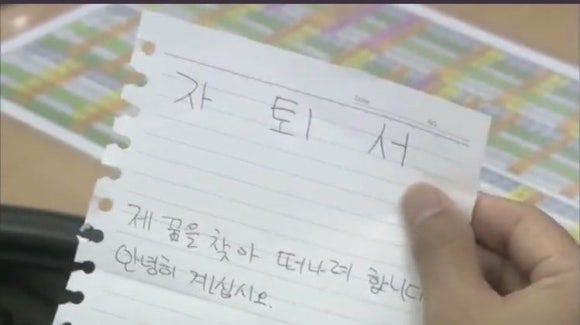 자 퇴 서
제 꿈을 찾아 떠나려 합니다
안녕히 계십시오.